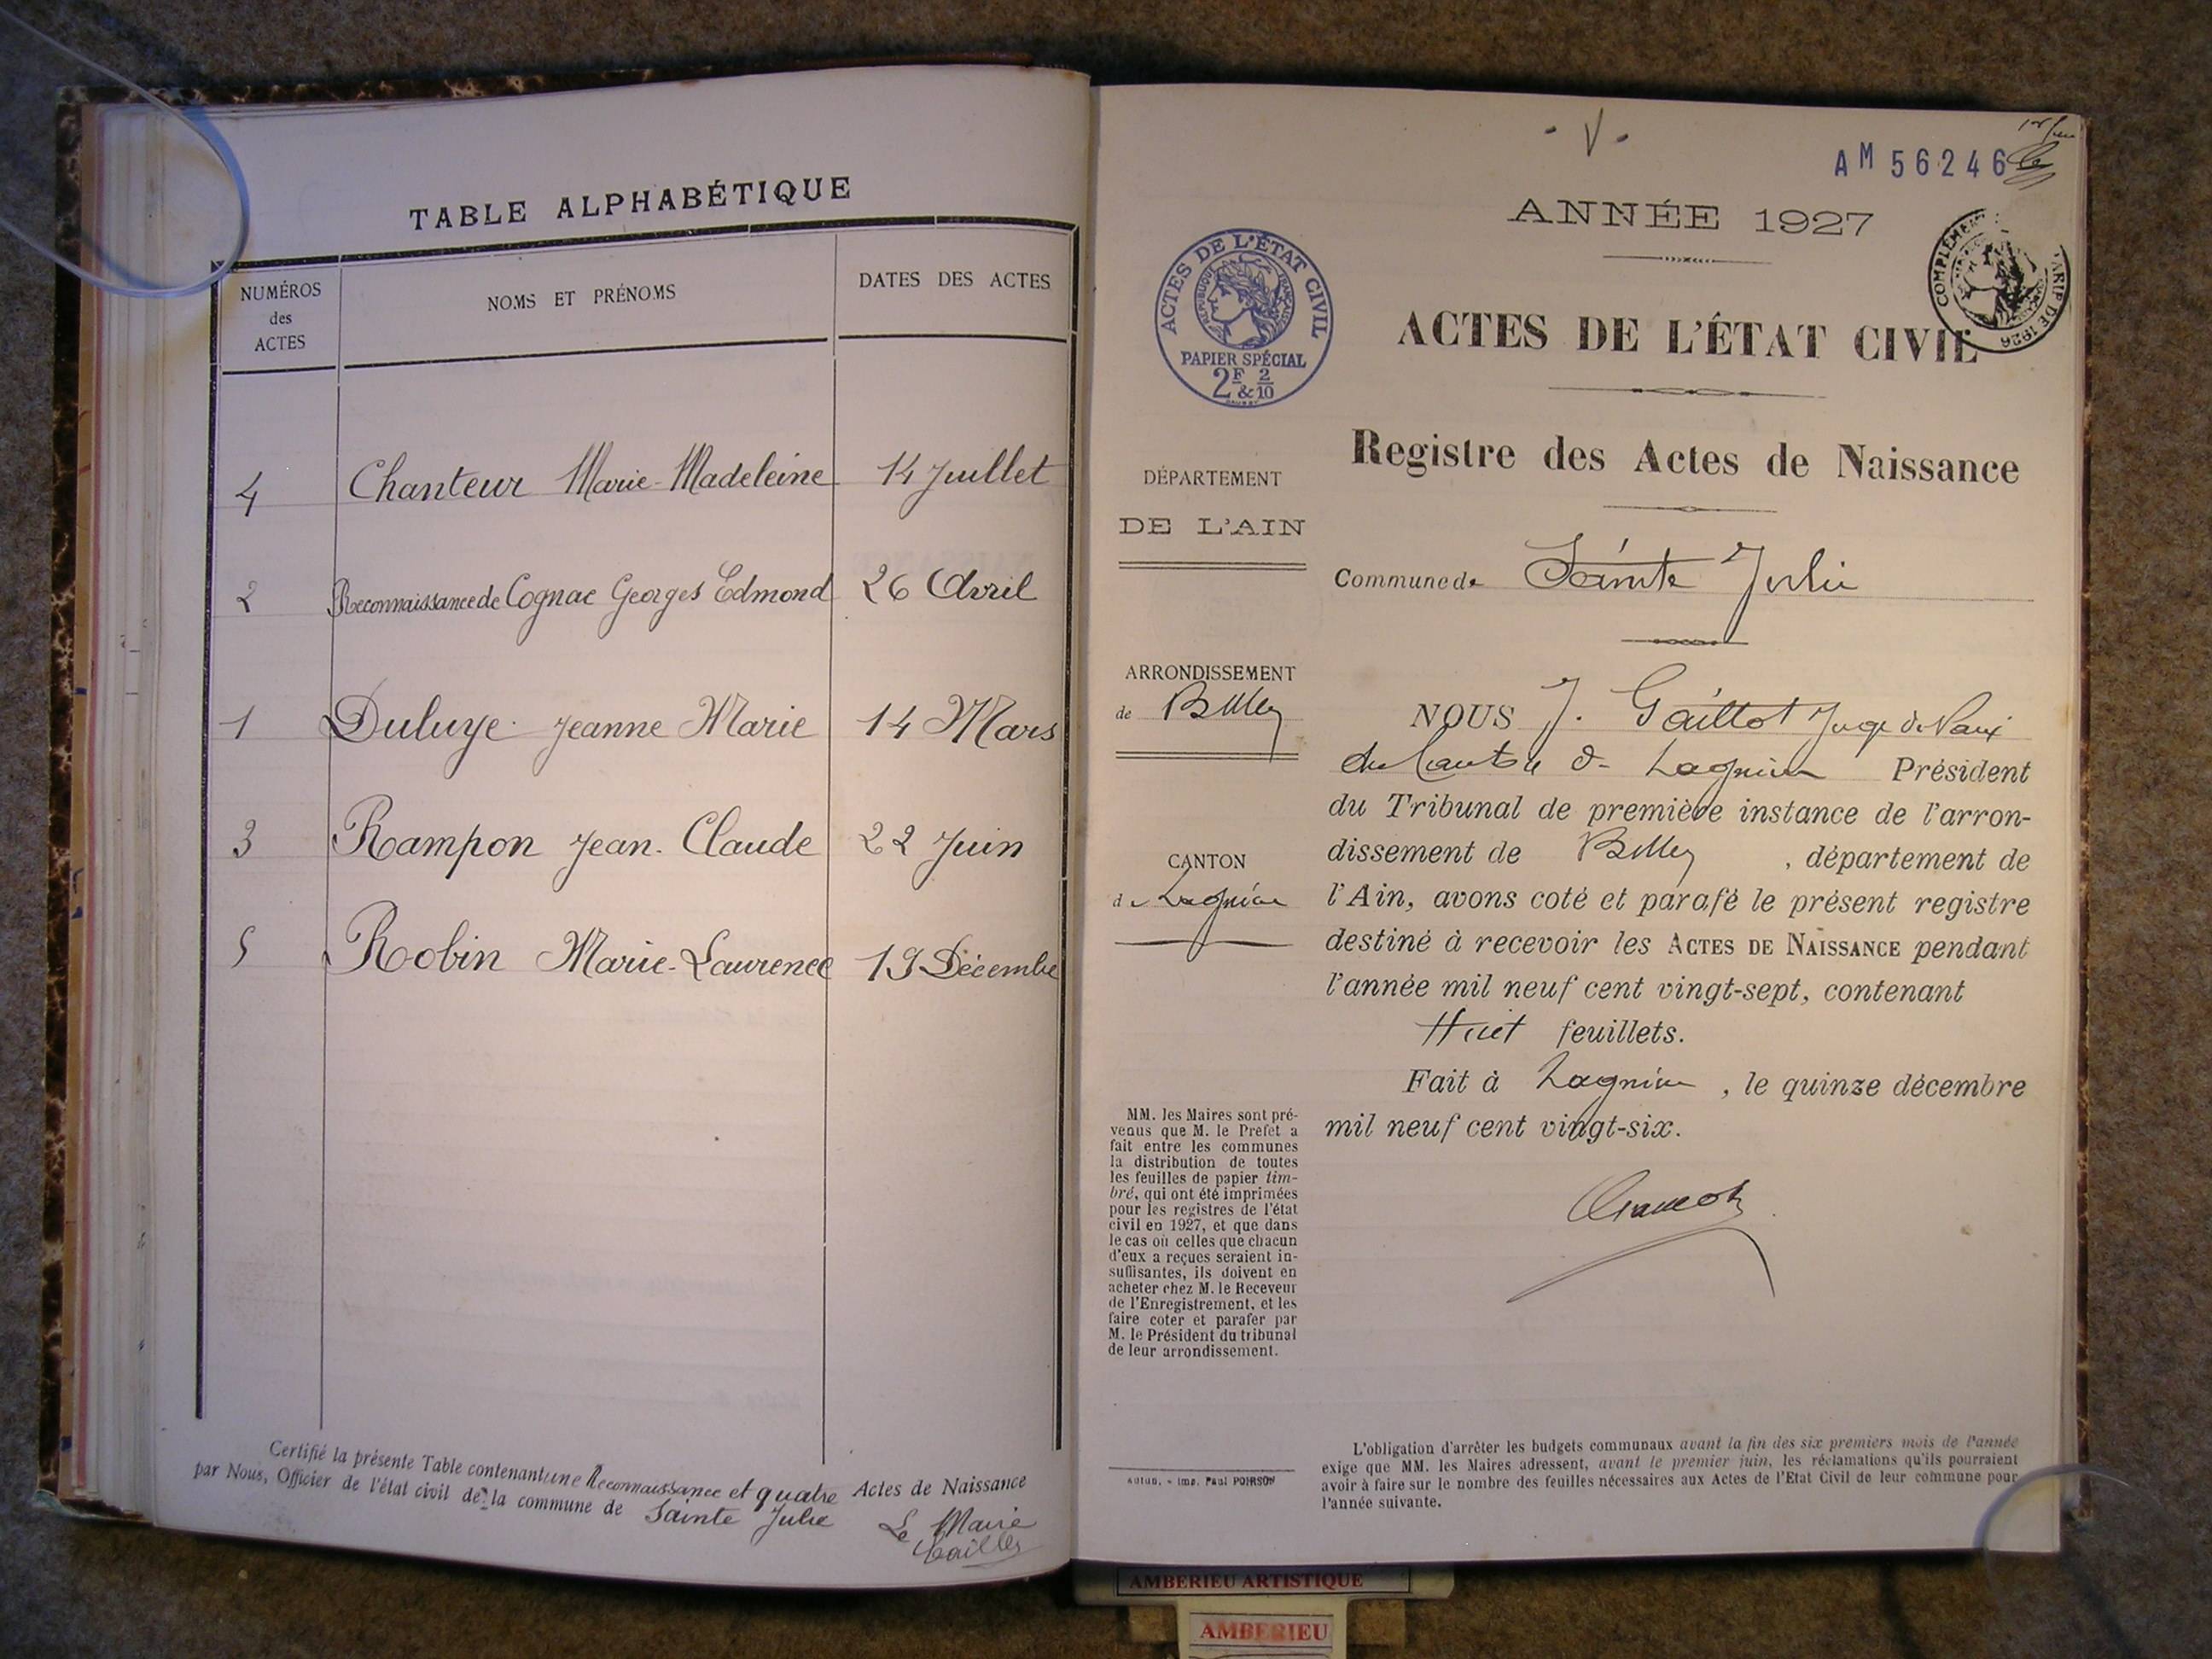 TABLE ALPHABÉTIQUE
NUMÉROS
des
ACTES
NOMS ET PRÉNOMS
DATES DES ACTES
4 Chanteur Marie-Madeleine 14 Juillet
2 Reconnaissance de Cognac Georges Edmond 26 Avril
1 Duluye Jeanne Marie 14 Mars
3 Rampon Jean-Claude 22 Juin
5 Robin Marie-Laurence 19 Décembre
Certifié la présente Table contenant une Reconnaissance et quatre Actes de Naissance
par Nous, Officier de l'état civil de la commune de Sainte Julie
Le Maire
- V -
AM 56246
ANNÉE 1927
ACTES DE L'ÉTAT CIVIL
RÉPUBLIQUE FRANÇAISE
PAPIER SPÉCIAL
2F & 2/10
COMPLÉMENT TARIF DE 1926
ACTES DE L'ÉTAT CIVIL
Registre des Actes de Naissance
DÉPARTEMENT
DE L'AIN
Commune de Sainte Julie
ARRONDISSEMENT
de Belley
CANTON
de Lagnieu
NOUS J. Gaillot Juge de Paix
du Canton de Lagnieu Président
du Tribunal de première instance de l'arron-
dissement de Belley, département de
l'Ain, avons coté et parafé le présent registre
destiné à recevoir les ACTES DE NAISSANCE pendant
l'année mil neuf cent vingt-sept, contenant
Huit feuillets.
Fait à Lagnieu, le quinze décembre
mil neuf cent vingt-six.
MM. les Maires sont pré-
venus que M. le Préfet a
fait entre les communes
la distribution de toutes
les feuilles de papier tim-
bré, qui ont été imprimées
pour les registres de l'état
civil en 1927, et que dans
le cas où celles que chacun
d'eux a reçues seraient in-
suffisantes, ils doivent en
acheter chez M. le Receveur
de l'Enregistrement, et les
faire coter et parafer par
M. le Président du tribunal
de leur arrondissement.
Autun. - Imp. Paul POIRSON
L'obligation d'arrêter les budgets communaux avant la fin des six premiers mois de l'année
exige que MM. les Maires adressent, avant le premier juin, les réclamations qu'ils pourraient
avoir à faire sur le nombre des feuilles nécessaires aux Actes de l'Etat Civil de leur commune pour
l'année suivante.
AMBERIEU ARTISTIQUE
AMBERIEU